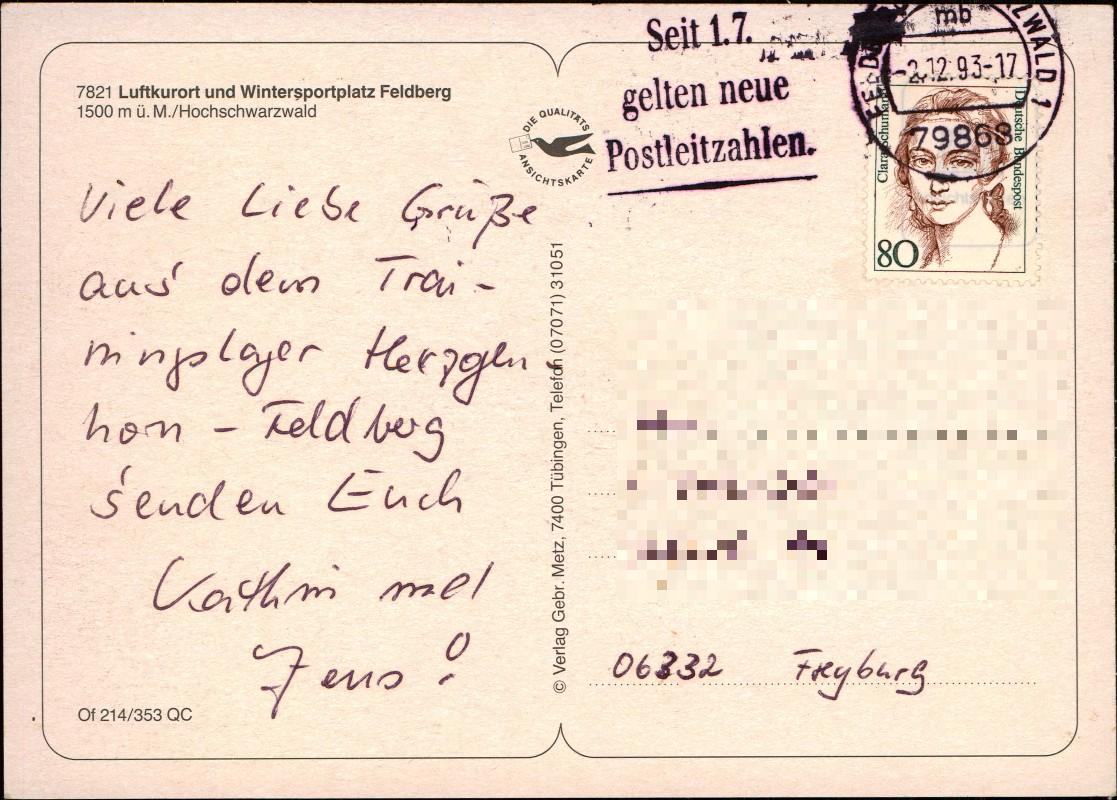 7821 Luftkurort und Wintersportplatz Feldberg
1500 m ü. M./Hochschwarzwald
DIE QUALITÄTS
ANSICHTSKARTE
Viele Liebe Grüße
aus dem Trai-
ningslager Herzogen
horn - Feldberg
senden Euch
Kathrin und
Jens!
Of 214/353 QC
© Verlag Gebr. Metz, 7400 Tübingen, Telefon (07071) 31051
Seit 1.7.
gelten neue
Postleitzahlen.
mb
-2.12.93-17
79868
WALD 1
Clara Schumann
Deutsche Bundespost
80
06332 Freyburg